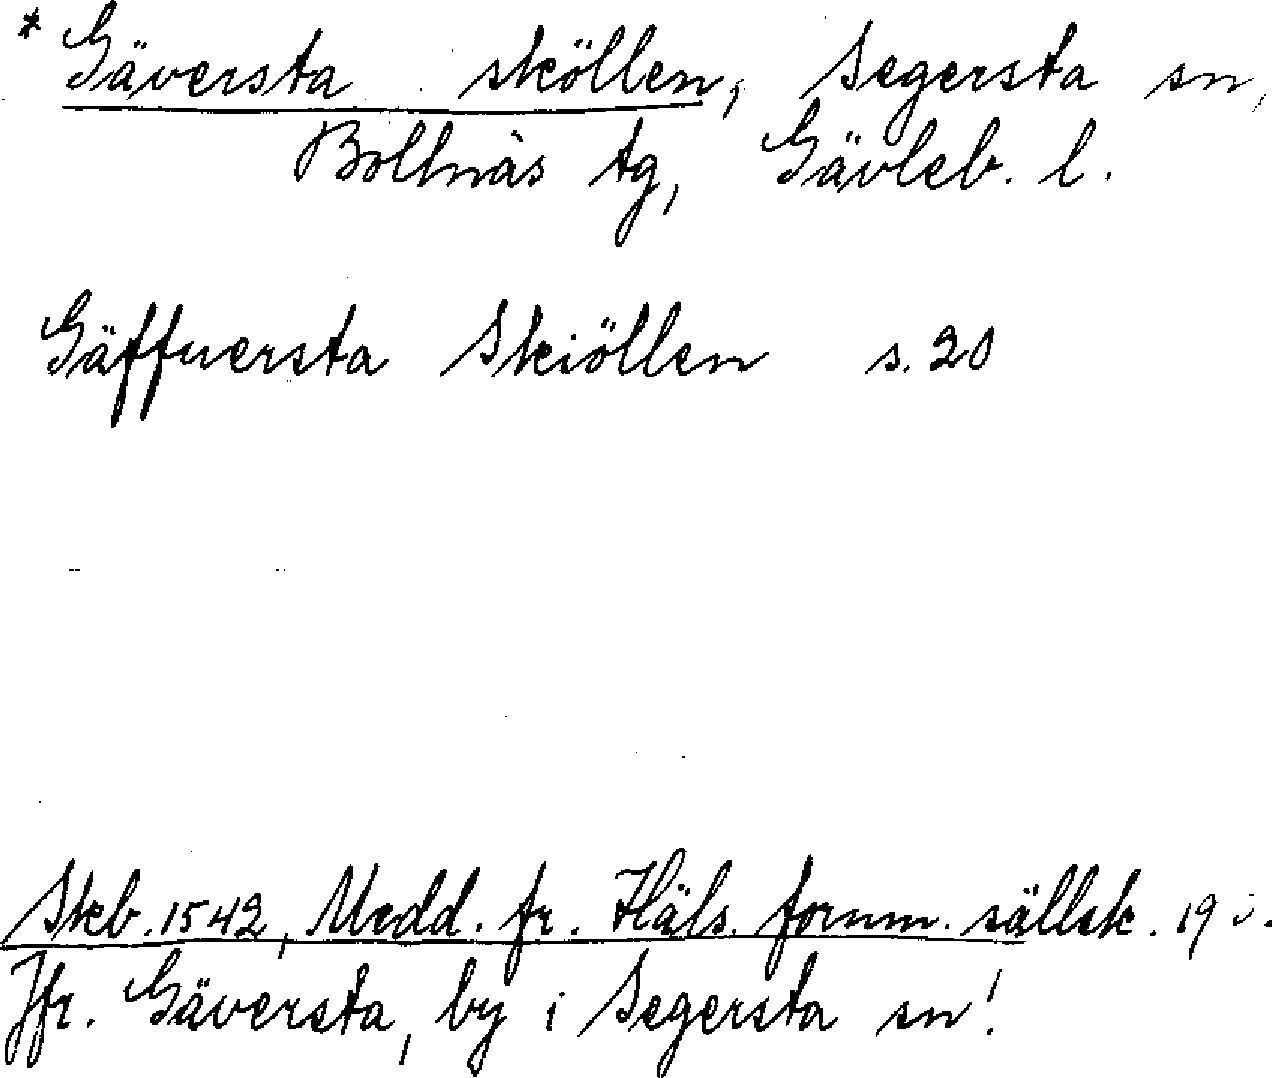 * Gäversta sköllen, Segersta sn,
Bollnäs tg, Gävleb. l.
Gäffuersta Skiöllen s. 20
Skb. 1542, Medd. fr. Häls. fornm. sällsk. 19
Jfr. Gäversta, by i Segersta sn!